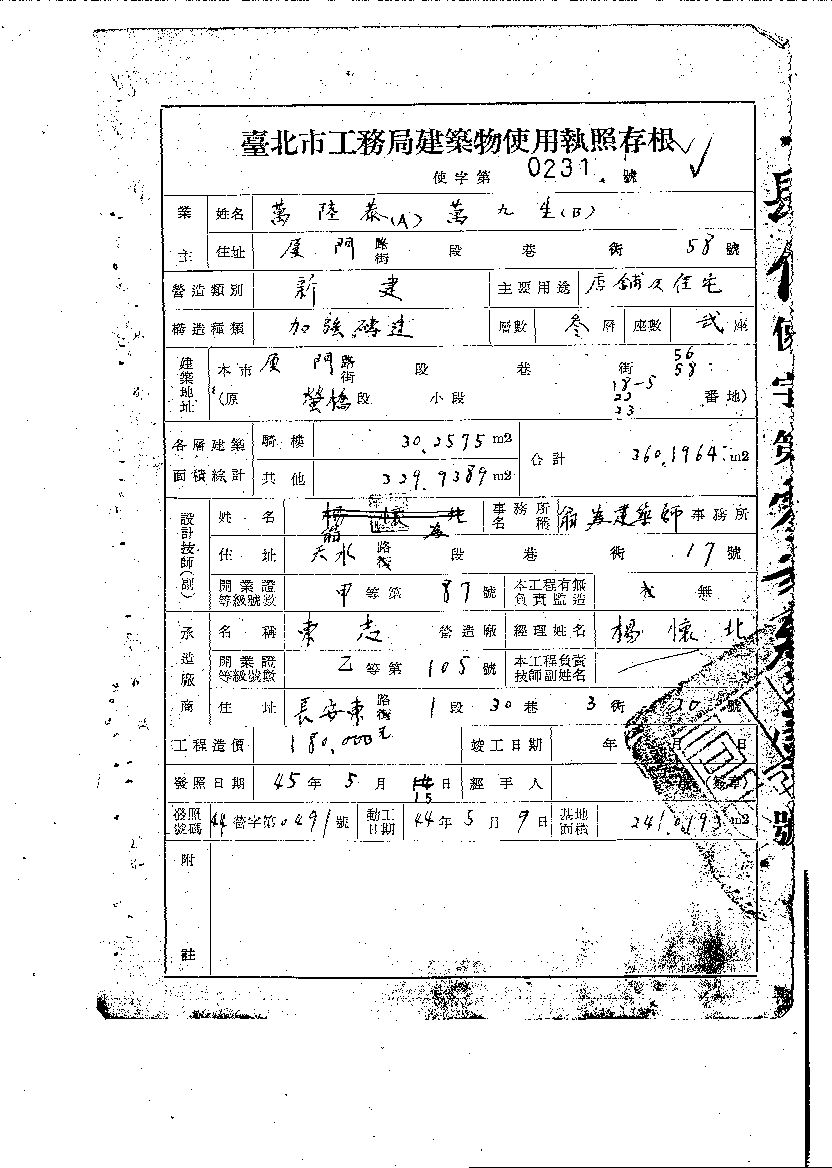 臺北市工務局建築物使用執照存根
使字第 0231 號
業主 姓名 萬陸泰(A) 萬九生(B)
住址 厦門 路街 段 巷 衖 58 號
營造類別 新建 主要用途 店舖及住宅
構造種類 加強磚造 層數 叁層 座數 弍座
建築地址 本市 厦門 路街 段 巷 衖 56 58
(原 螢橋段 小段 18-5 22 23 番地)
各層建築面積總計 騎樓 30.2575 m2 合計 360.1964 m2
其他 329.9389 m2
設計技師(副) 姓名 事務所名稱 建築師事務所
住址 天水 路街 段 巷 衖 17 號
開業證等級號數 甲等第 87 號 本工程有無負責監造 無
承造廠商 名稱 東志 營造廠 經理姓名 楊懷北
開業證等級號數 乙等第 105 號 本工程負責技師副姓名
住址 長安東 路街 1段 30巷 3衖 20號
工程造價 180,000元 竣工日期 年 月 日
發照日期 45年5月15日 經手人 (簽章)
發照號碼 44營字第0491號 動工日期 44年5月9日 基地面積 241.0193 m2
附註